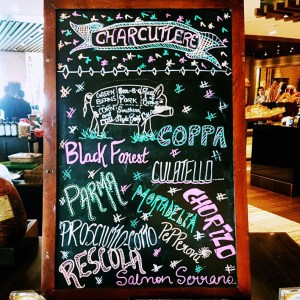 CHARCUTIERE
GREEN
BEANS
CORN
BAR-B-Q
PORK
Southern
Style Pork
COPPA
Black Forest
CULATELLO
PARMA
MORTADELLA
CHORIZO
PROSCIUTTO COTTO
PePPeroni
RESCOLA
Salmon Serrano